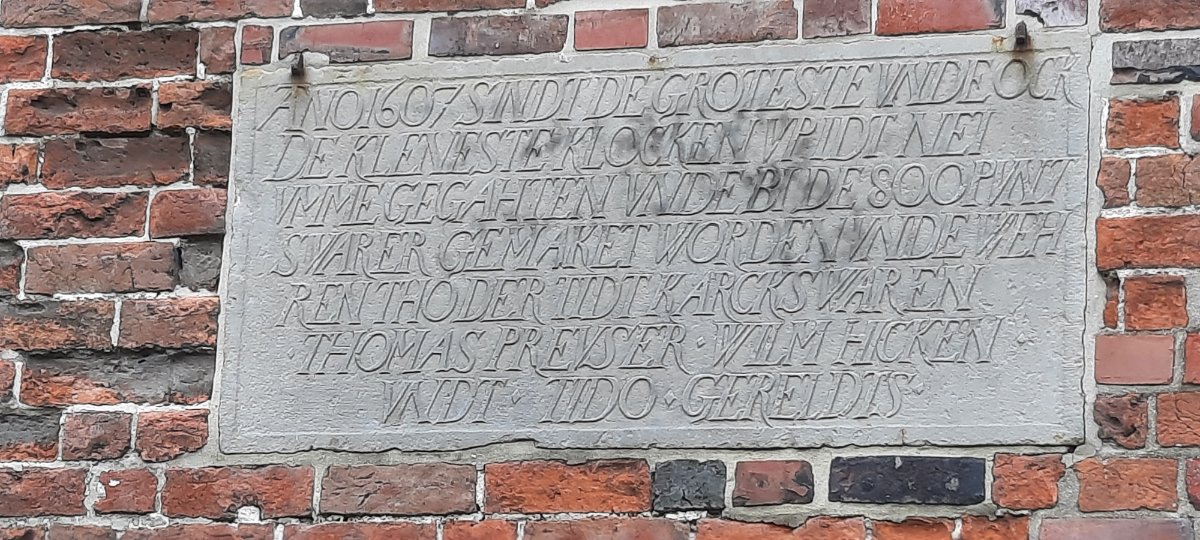 ANO 1607 SINDT DE GROTESTE VNDE OCK
DE KLENESTE KLOCKEN VP IIDT NEI
VMME GEGAHTEN VNDE BI DE 800 PVNT
SVARER GEMAKET WORDEN VNDE WEH
REN THO DER TIDT KARCKSVAREN
·THOMAS PREVSER·WILM HICKEN
VNDT·TIDO·GERELDIS·